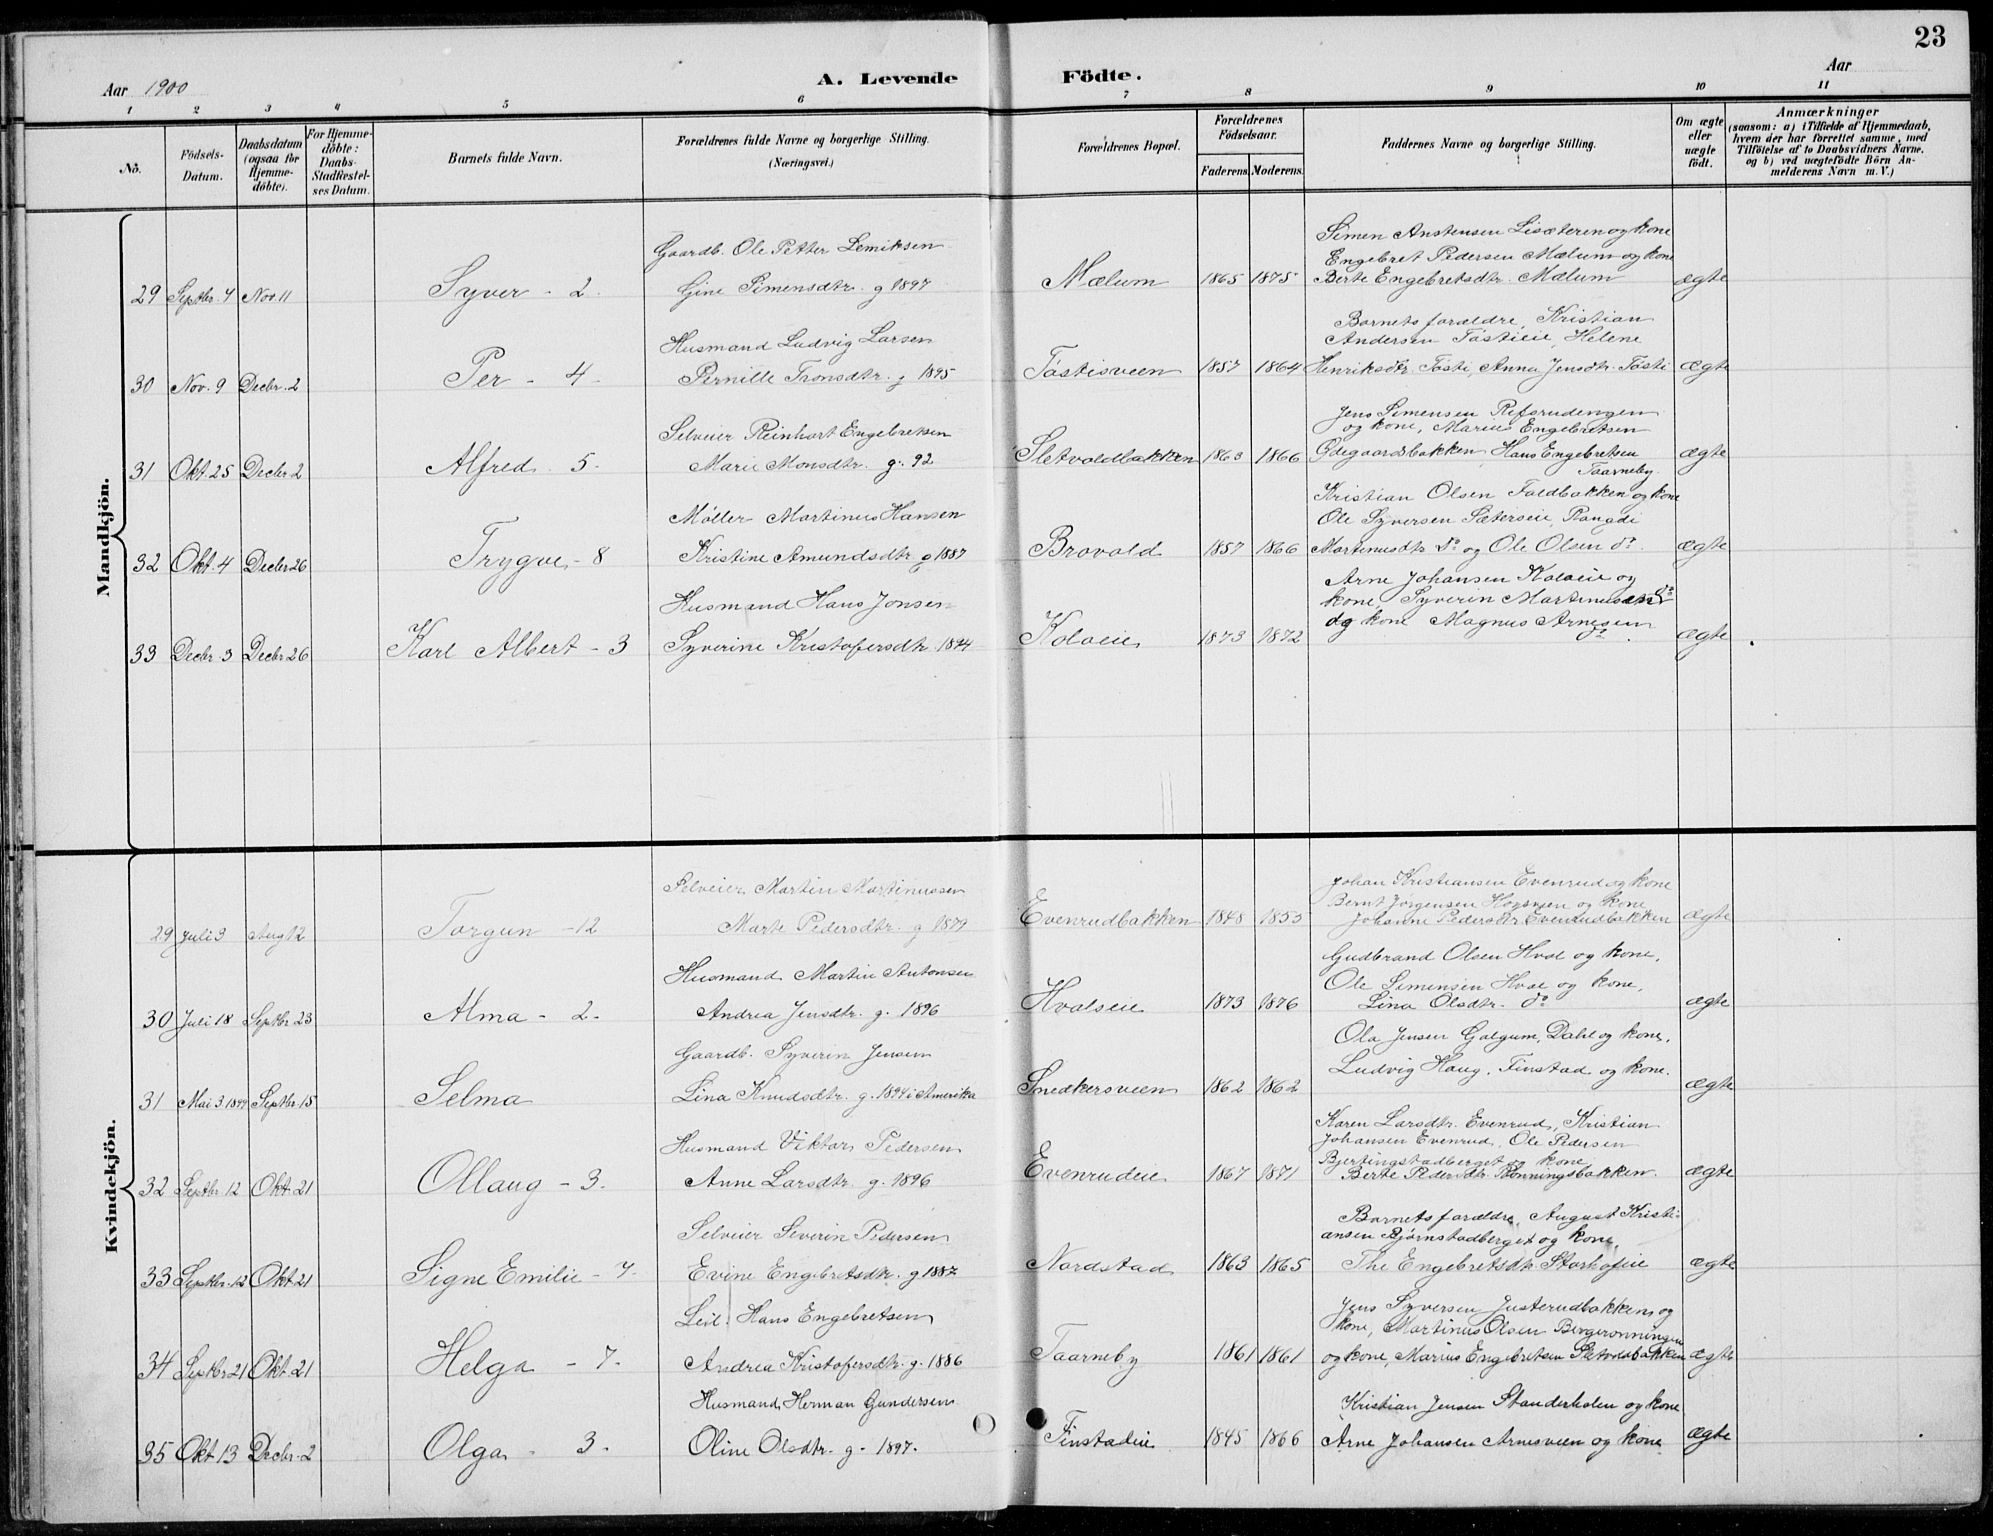 23
Aar 1900
A. Levende Födte.
Aar
1 2 3 4 5 6 7 8 9 10 11
No.
Födsels-Datum.
Daabsdatum (ogsaa for Hjemme-döbte).
For Hjemme-döbte: Daabs-Stadfæstel-ses Datum.
Barnets fulde Navn.
Forældrenes fulde Navne og borgerlige Stilling. (Næringsvei.)
Forældrenes Bopæl.
Forældrenes Födselsaar.
Faderens. Moderens.
Faddernes Navne og borgerlige Stilling.
Om ægte eller uægte födt.
Anmærkninger
(saasom: a) i Tilfælde af Hjemmedaab,
hvem der har forrettet samme, med
Tilföielse af to Daabsvidners Navne.
og b) ved uægtefödte Börn An-
melderens Navn m. V.)
Mandkjön.
Gaardb. Ole Petter Lemiksen
Simen Anstensen Lisæteren og kone
Engebret Pedersen Mælum og kone
29 Septbr. 7 Nov. 11 Syver - 2. Gine Simensdtr. g 1897 Mælum 1865 1875 Berte Engebretsdtr. Mælum ægte
Husmand Ludvig Larsen
Barnets forældre, Kristian
Andersen Tøstieie, Helene
30 Nov. 9 Decbr. 2 Per - 4 - Pernille Tronsdtr. g 1895 Tøstisveen 1857 1864 Henriksdtr. Tøsti, Anna Jensdtr. Tøsti ægte
Selveier Reinhart Engebretsen
Jens Simensen Refsrudengen
og kone, Marius Engebretsen
31 Okt. 25 Decbr. 2 Alfred. 5. Marie Monsdtr. g. 92 Sletvoldbakken 1863 1866 Ødegaardsbakken, Hans Engebretsen ægte
Taarneby.
Møller Martinus Hansen
Kristian Olsen Faldbakken og kone
Ole Syversen Sæterseie, Rangdi
32 Okt. 4 Decbr 26 Trygve - 8 Kristine Amundsdtr. g 1887 Brovold 1857 1866 Martinusdtr. do og Ole Olsen do. ægte
Husmand Hans Jonsen
Arne Johansen Kolveie og
kone, Syverin Martinusen do
33 Decbr. 3 Decbr 26 Karl Albert - 3 Syverine Kristofersdtr. 1894 Kolveie 1873 1872 og kone Magnus Arnesen do. ægte
Kvindekjön.
Selveier Martin Martinussen
Johan Kristiansen Evenrud og kone
Bernt Jørgensen og kone
29 Juli 3 Aug 12 Torgun - 12 Marte Pedersdtr. g 1879 Evenrudbakken 1848 1855 Johanne Pedersdtr. Evenrudbakken ægte
Husmand Martin Antonsen
Gudbrand Olsen Hval og kone,
Ole Simensen Hval og kone,
30 Juli 18 Septbr 23 Alma - 2. Andrea Jensdtr. g. 1896 Hvalseie 1873 1876 Lina Olsdtr. do ægte
Gaardb. Syverin Jensen
Ola Jensen Galgum, Dahl og kone,
Ludvig Haug, Finstad og kone.
31 Mai 3 1899 Septbr. 15 Selma Lina Knudsdtr. g. 1894 i Amerika Snedkersveen 1862 1862 ægte
Husmand Viktor Pedersen
Karen Larsdtr. Evenrud, Kristian
Johansen Evenrud, Ole Pedersen
Bjertingstadberget og kone
32 Septbr 12 Okt. 21 Ollaug - 3. Anne Larsdtr. g. 1896 Evenrudeie 1867 1871 Berte Pedersdtr. Rønningsbakken. ægte
Selveier Severin Pedersen
Barnets forældre, August Kristi-
ansen Bjørnstadberget og kone,
33 Septbr. 12 Okt. 21 Signe Emilie - 7. Evine Engebretsdtr. g 1887 Nordstad 1863 1865 Thé Engebretsdtr. Storhofeie ægte
Leil. Hans Engebretsen
Jens Syversen Justerudbakken og
kone, Martinus Olsen Bergerønningen
34 Septbr 21 Okt. 21 Helga - 7. Andrea Kristofersdtr. g. 1886 Taarneby 1861 1861 og kone, Marius Engebretsen Sletvoldbakken ægte
Husmand, Herman Gundersen
Kristian Jensen Standerholen og kone
35 Okt 13 Decbr. 2 Olga - 3. Oline Olsdtr. g. 1897. Finstadeie 1845 1866 Arne Johansen Arnesveen og kone ægte